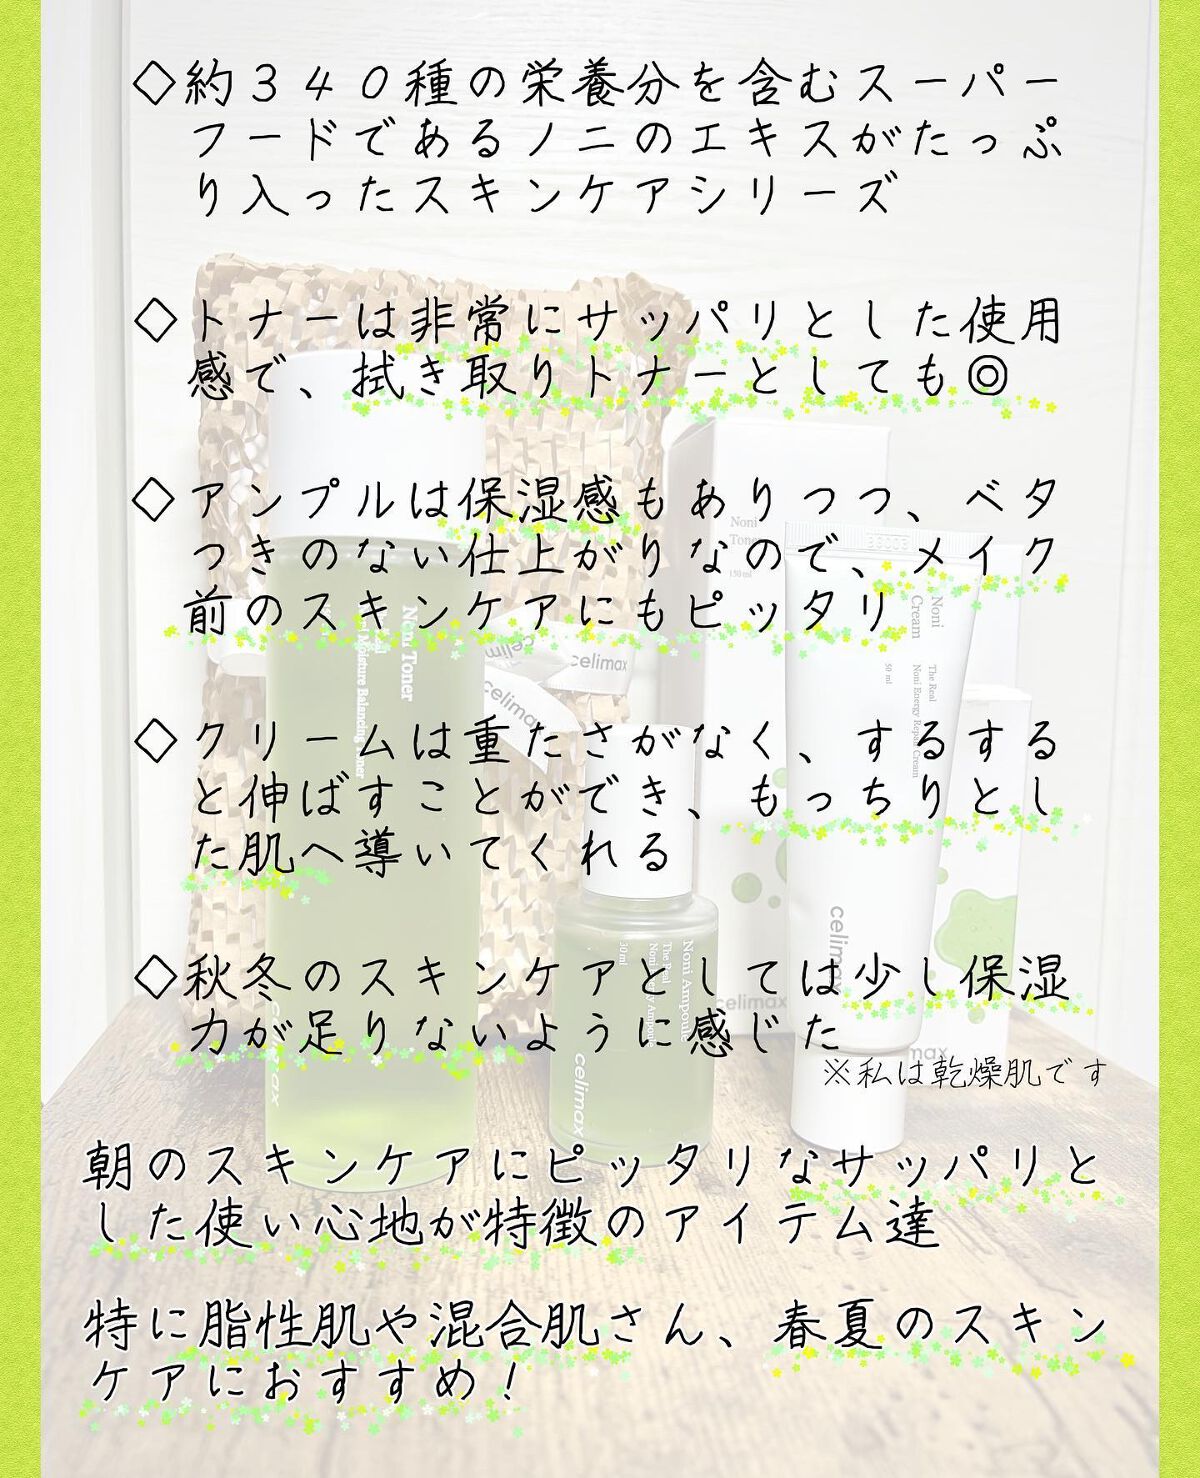 ◇約３４０種の栄養分を含むスーパー
フードであるノニのエキスがたっぷ
り入ったスキンケアシリーズ
◇トナーは非常にサッパリとした使用
感で、拭き取りトナーとしても◎
◇アンプルは保湿感もありつつ、ベタ
つきのない仕上がりなので、メイク
前のスキンケアにもピッタリ
◇クリームは重たさがなく、するする
と伸ばすことができ、もっちりとし
た肌へ導いてくれる
◇秋冬のスキンケアとしては少し保湿
力が足りないように感じた
※私は乾燥肌です
朝のスキンケアにピッタリなサッパリと
した使い心地が特徴のアイテム達
特に脂性肌や混合肌さん、春夏のスキン
ケアにおすすめ！
Noni Toner
Moisture Balancing Toner
celimax
celimax
celimax
Noni
Toner
150ml
Noni
Cream
The Real
Noni Energy Repair Cream
50 ml
celimax
Noni Ampoule
The Real
Noni Energy Ampoule
30ml
celimax
celimax